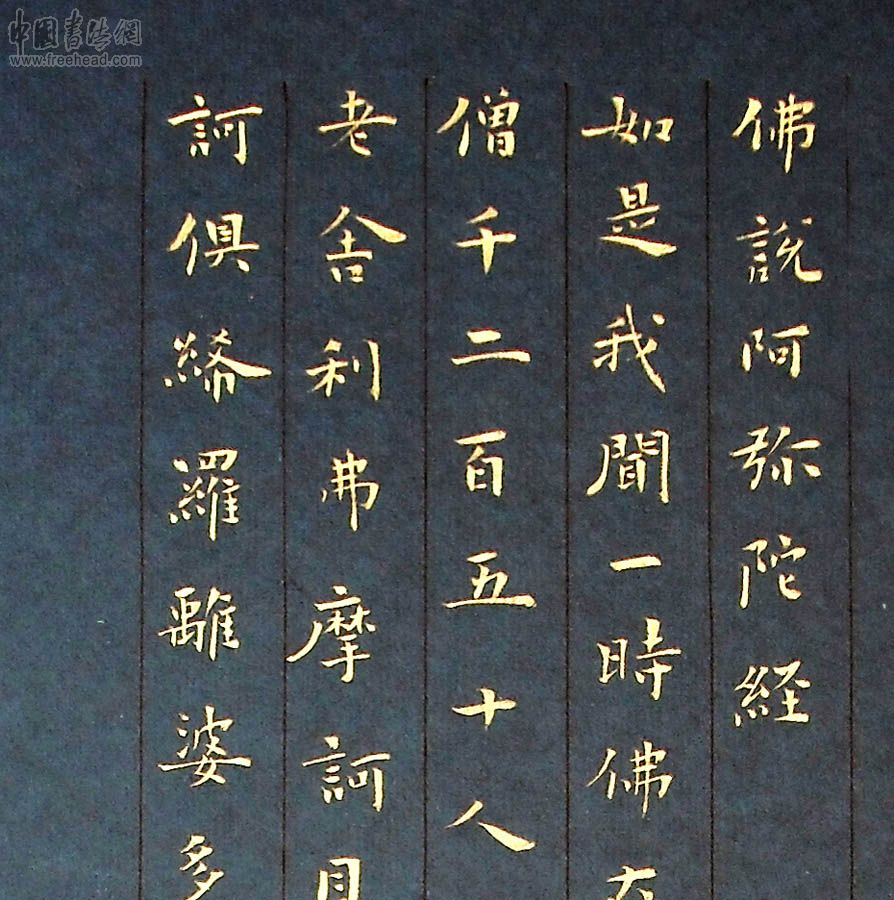 佛說阿弥陀経
如是我聞一時佛在
僧千二百五十人
老舍利弗摩訶目
訶俱絺羅離婆多
中国書法網
www.freehead.com